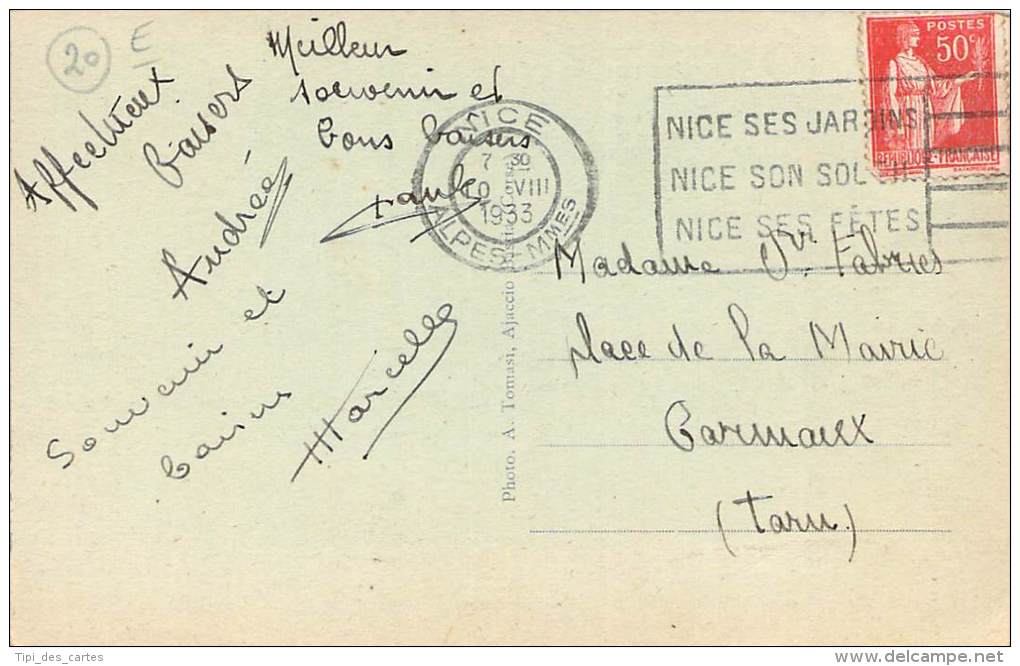 20
E
Affectueux
baisers
Andrée
Meilleur
souvenir et
bons baisers
Souvenir et
baisers
Marcelle
NICE
7 30
10 VIII
1933
ALPES-MMES
NICE SES JARDINS
NICE SON SOLEIL
NICE SES FÊTES
POSTES
50c
REPUBLIQUE FRANÇAISE
Madame Vve Fabries
place de la Mairie
Carmaux
(Tarn)
Photo. A. Tomasi, Ajaccio
Tipi_des_cartes